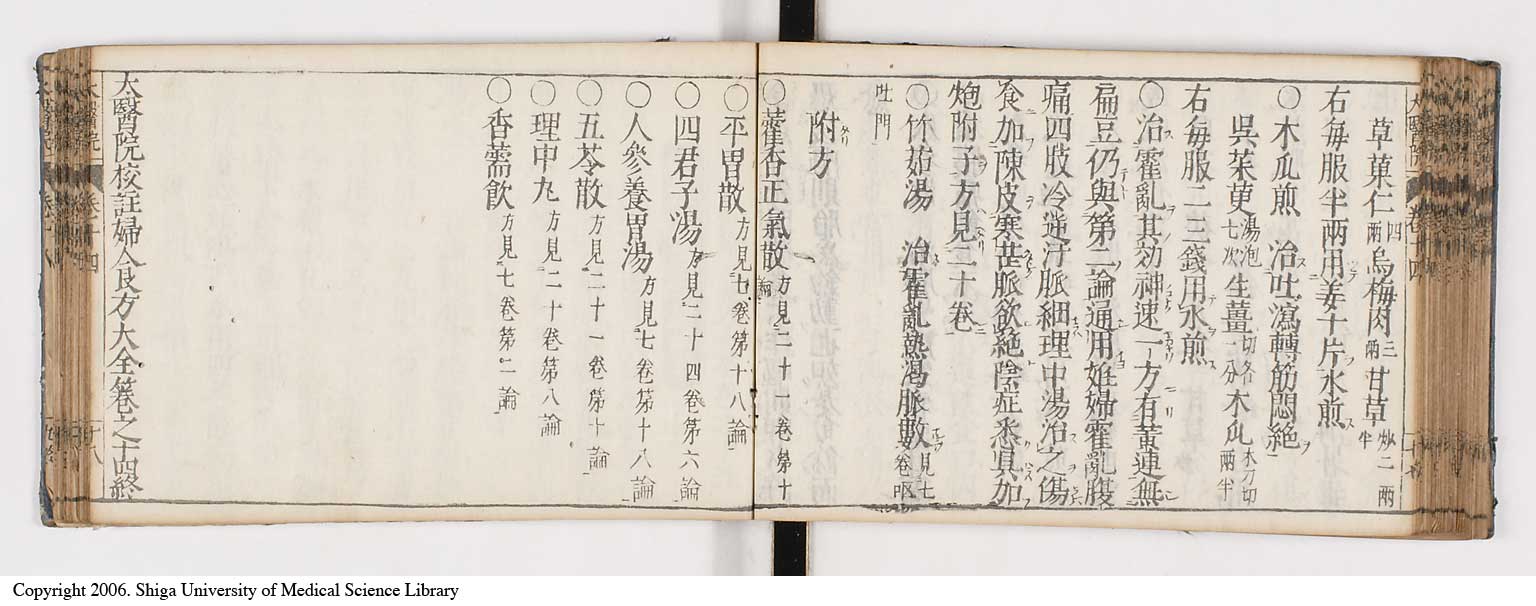 草菓仁四兩烏梅肉三兩甘草炒二兩半
右每服半兩用姜十片水煎
〇木瓜煎 治吐瀉轉筋悶絶
吳茱萸湯泡七次生薑切各一分木瓜木刀切兩半
右每服二三錢用水煎
〇治霍亂其効神速一方有黄連無
扁豆仍與第二論通用姙婦霍亂腹
痛四肢冷逆汗脈細理中湯治之傷
食加陳皮寒甚脈欲絶陰症悉具加
炮附子方見二十卷
〇竹茹湯 治霍亂熱渴脈數見七卷嘔
吐門
附方
〇藿香正氣散方見二十一卷第十論
〇平胃散方見七卷第十八論
〇四君子湯方見二十四卷第六論
〇人參養胃湯方見七卷第十八論
〇五苓散方見二十一卷第十論
〇理中丸方見二十卷第八論
〇香薷飲方見七卷第二論
太醫院校註婦人良方大全卷之十四終
Copyright 2006. Shiga University of Medical Science Library